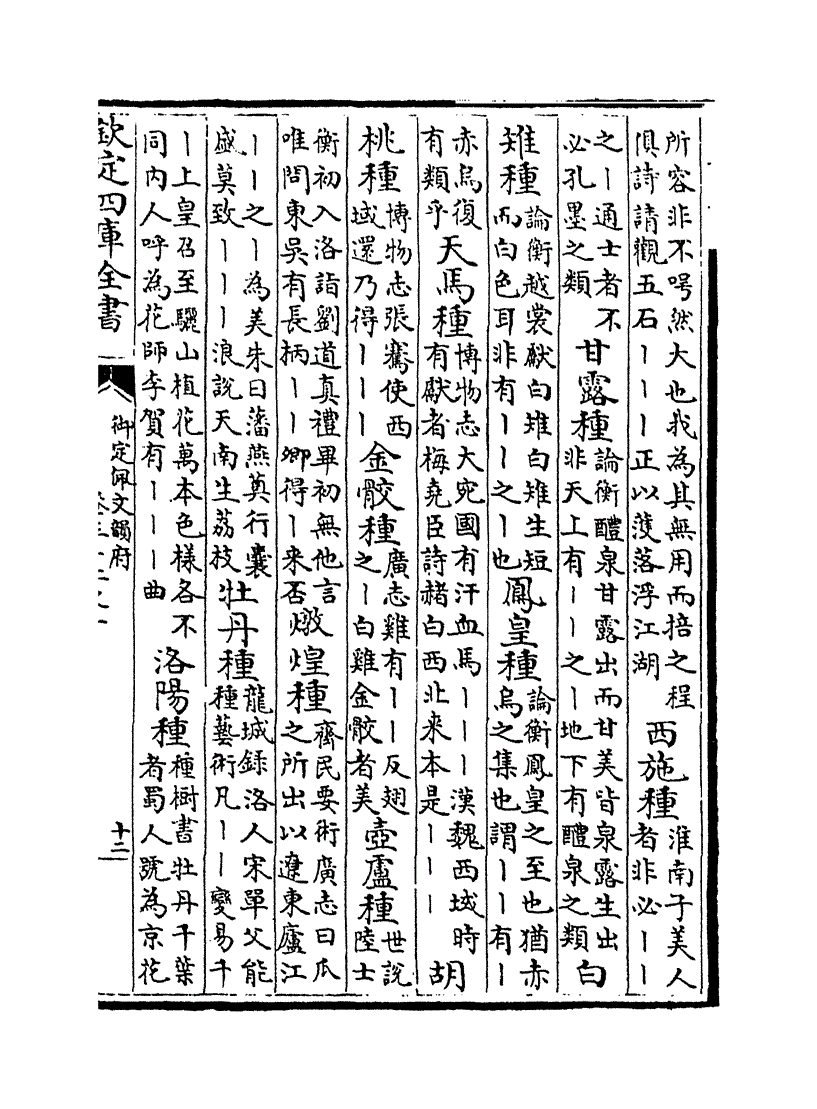 所容非不呺然大也我為其無用而掊之程
俱詩請觀五石丨丨丨正以濩落浮江湖
西施種
淮南子美人
者非必丨丨
之丨通士者不
必孔墨之類
甘露種
論衡醴泉甘露出而甘美皆泉露生出
非天上有丨丨之丨地下有醴泉之類
白
雉種
論衡越裳獻白雉白雉生短
而白色耳非有丨丨之丨也
鳳皇種
論衡鳳皇之至也猶赤
烏之集也謂丨丨有丨
赤烏復
有類乎
天馬種
博物志大宛國有汗血馬丨丨丨漢魏西域時
有獻者梅堯臣詩赭白西北来本是丨丨丨
胡
桃種
博物志張騫使西
域還乃得丨丨丨
金骹種
廣志雞有丨丨反翅
之丨白雞金骹者美
壺盧種
世說
陸士
衡初入洛詣劉道真禮畢初無他言
唯問東吳有長柄丨丨卿得丨来否
燉煌種
齊民要術廣志曰瓜
之所出以遼東廬江
丨丨之丨為美朱曰藩燕奠行囊
盛莫致丨丨丨浪說天南生荔枝
牡丹種
龍城録洛人宋單父能
種藝術凡丨丨變易千
丨上皇召至驪山植花萬本色様各不
同內人呼為花師李賀有丨丨丨曲
洛陽種
種樹書牡丹千葉
者蜀人號為京花
欽定四庫全書
御定佩文韻府
十二